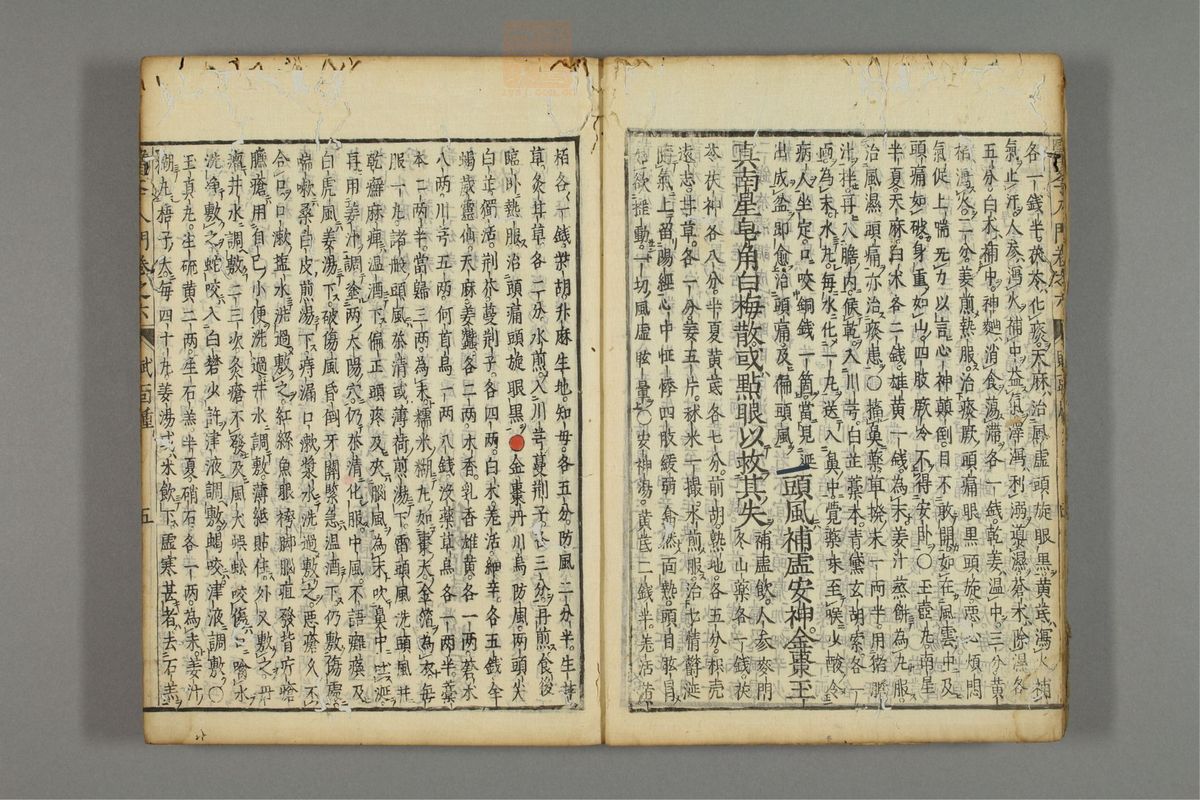 各一錢半茯苓化痰天麻治風虛頭旋眼黑黃芪瀉火補
氣止汗人參瀉火補中益氣澤瀉利溺導濕蒼朮除濕各
五分白朮補中神麯消食蕩滯各一錢乾姜溫中三分黃
栢瀉火二分姜煎熱服治痰厥頭痛眼黑頭旋惡心煩悶
氣促上喘无力以言心神顛倒目不敢開如在風雲中及
頭痛如破身重如山四肢厥冷不得安卧○玉壺丸南星
半夏天麻白朮各二錢雄黃一錢為末姜汁蒸餅為丸服
治風濕頭痛亦治痰患○搐鼻藥草烏末一兩半用猪膽
汁拌再入膽內候乾入川芎白芷藁本青黛玄胡索各一
兩為末水丸每水化一丸送入鼻中覺藥味至喉少酸令
病人坐定口咬銅錢一箇當見涎
出成盆即愈治頭痛及偏頭風
頭風補虛安神金棗玉
真南星皂角白梅散或點眼以救其失
補虛飲人參麥門
冬山藥各一錢茯
苓茯神各八分半夏黃芪各七分前胡熟地各五分枳壳
遠志甘草各二分姜五片秫米一撮水煎服治七情鬱涎
隨氣上留陽經心中怔悸四肢緩弱翕然面熱頭目眩冒
如欲推動一切風虛眩暈○安神湯黃芪二錢半羌活防
栢各一錢柴胡升麻生地知母各五分防風二分半生甘
草炙甘草各二分水煎入川芎蔓荆子各三分再煎食後
臨卧熱服治頭痛頭旋眼黑 金棗丹川烏防風兩頭尖
白芷獨活荆芥蔓荆子各四兩白朮羌活細辛各五錢全
蝎威靈仙天麻姜蠶各二兩木香乳香雄黃各一兩蒼朮
八兩川芎五兩何首烏一兩八錢沒藥草烏各一兩半藁
本二兩半當歸三兩為末糯米糊丸如棗大金箔為衣每
服一丸諸般頭風茶清或薄荷煎湯下雷頭風洗頭風并
乾癬麻痺溫酒下偏正頭疼及夾腦風為末吹鼻中吐涎
再用姜汁調塗兩太陽穴仍茶清化服中風不語癱瘓及
白虎風姜湯下破傷風昏倒牙關緊急溫酒下仍敷傷處
喘嗽桑白皮煎湯下痔漏口漱漿水洗過敷之惡瘡久不
合口口漱塩水洗過敷之紅絲魚眼袴脚腦疽發背疔瘡
臁瘡用自己小便洗過井水調敷薄紙貼住外又敷之丹
瘤井水調敷二三次灸瘡不發及風犬蜈蚣咬傷口噙水
洗净敷之蛇咬入白礬少許津液調敷蝎咬津液調敷○
玉真丸生硫黃二兩生石羔半夏硝石各一兩為末姜汁
糊丸梧子大每四十丸姜湯或米飲下虛寒甚者去石羔